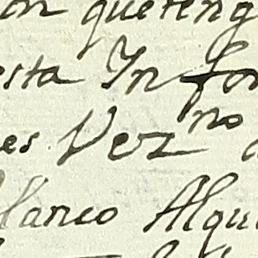 on que teng
esta Infor
es Vez^no
lanco Alqui